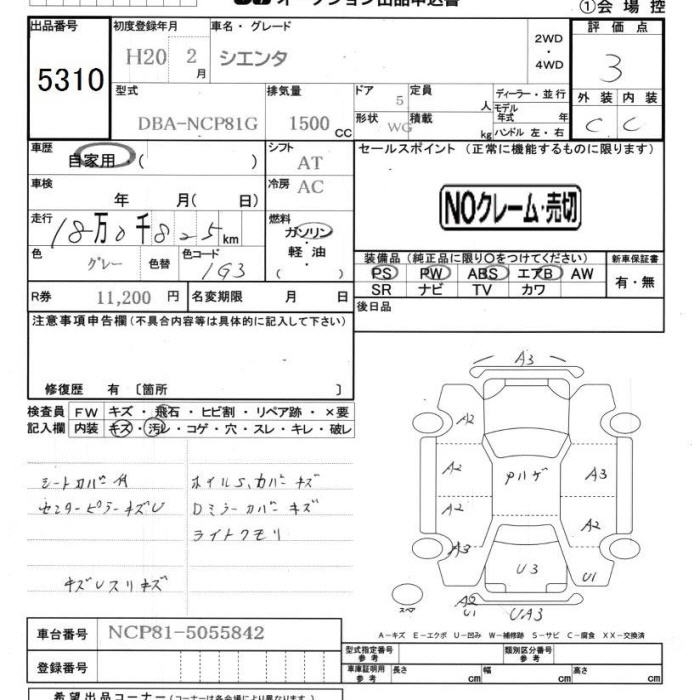 オークション出品申込書
①会場控
出品番号
5310
初度登録年月
H20 2月
車名・グレード
シエンタ
2WD
・
4WD
評価点
3
型式
DBA-NCP81G
排気量
1500 CC
ドア
5
形状
WG
定員
人
積載
kg
ディーラー・並行
モデル年式 年
ハンドル 左・右
外装 内装
C C
車歴
自家用 ( )
シフト
AT
車検
年 月( 日)
冷房
AC
走行
18万0千825km
燃料
ガソリン
・
軽油
( )
色
グレー
色替
色コード
1G3
セールスポイント (正常に機能するものに限ります)
NOクレーム・売切
装備品 (純正品に限り〇をつけてください)
PS PW ABS エアB AW
SR ナビ TV カワ
新車保証書
有・無
R券 11,200 円
名変期限 月 日
後日品
注意事項申告欄 (不具合内容等は具体的に記入して下さい)
修復歴 有 〔箇所 〕
検査員
記入欄
FW キズ・飛石・ヒビ割・リペア跡・×要
内装 キズ・汚レ・コゲ・穴・スレ・キレ・破レ
シートカバー付
センターピラーキズU
キズUスリキズ
ホイルS、カバーキズ
Dミラーカバーキズ
ライトクモリ
A3
A2
A2
A2
A3
Pハゲ
A3
A2
U3
U1
スペア
A2
U1
UA3
A-キズ E-エクボ U-凹み W-補修跡 S-サビ C-腐食 XX-交換済
車台番号
NCP81-5055842
登録番号
型式指定番号
参考
類別区分番号
参考
車庫証明用
参考
長さ cm
幅 cm
高さ cm
希望出品コーナー (コーナーは各会場により異なります。)